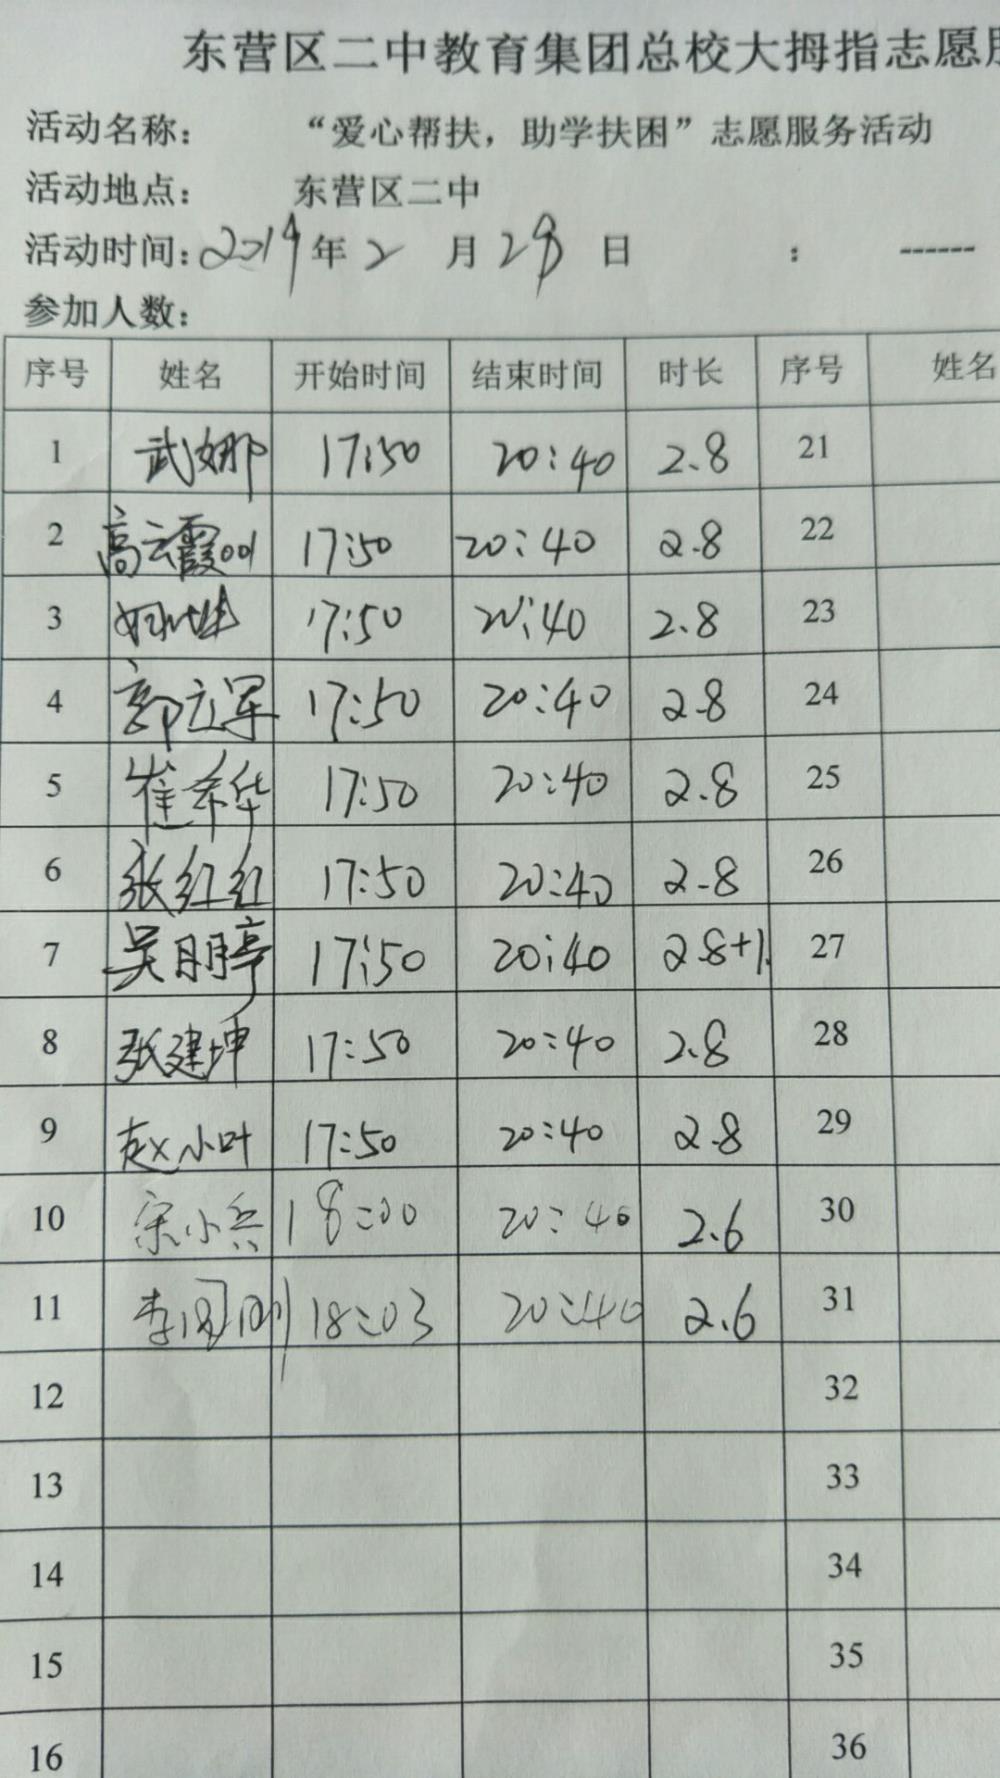 东营区二中教育集团总校大拇指志愿
活动名称: “爱心帮扶，助学扶困”志愿服务活动
活动地点: 东营区二中
活动时间: 2019 年 2 月 28 日 : ------
参加人数:
序号 姓名 开始时间 结束时间 时长 序号 姓名
1 武娜 17:50 20:40 2.8 21
2 高云霞001 17:50 20:40 2.8 22
3 17:50 20:40 2.8 23
4 郭立军 17:50 20:40 2.8 24
5 崔希华 17:50 20:40 2.8 25
6 张红红 17:50 20:40 2.8 26
7 吴朋亭 17:50 20:40 2.8+1. 27
8 张建坤 17:50 20:40 2.8 28
9 赵小叶 17:50 20:40 2.8 29
10 宋小兵 18:00 20:40 2.6 30
11 李国刚 18:03 20:40 2.6 31
12 32
13 33
14 34
15 35
16 36